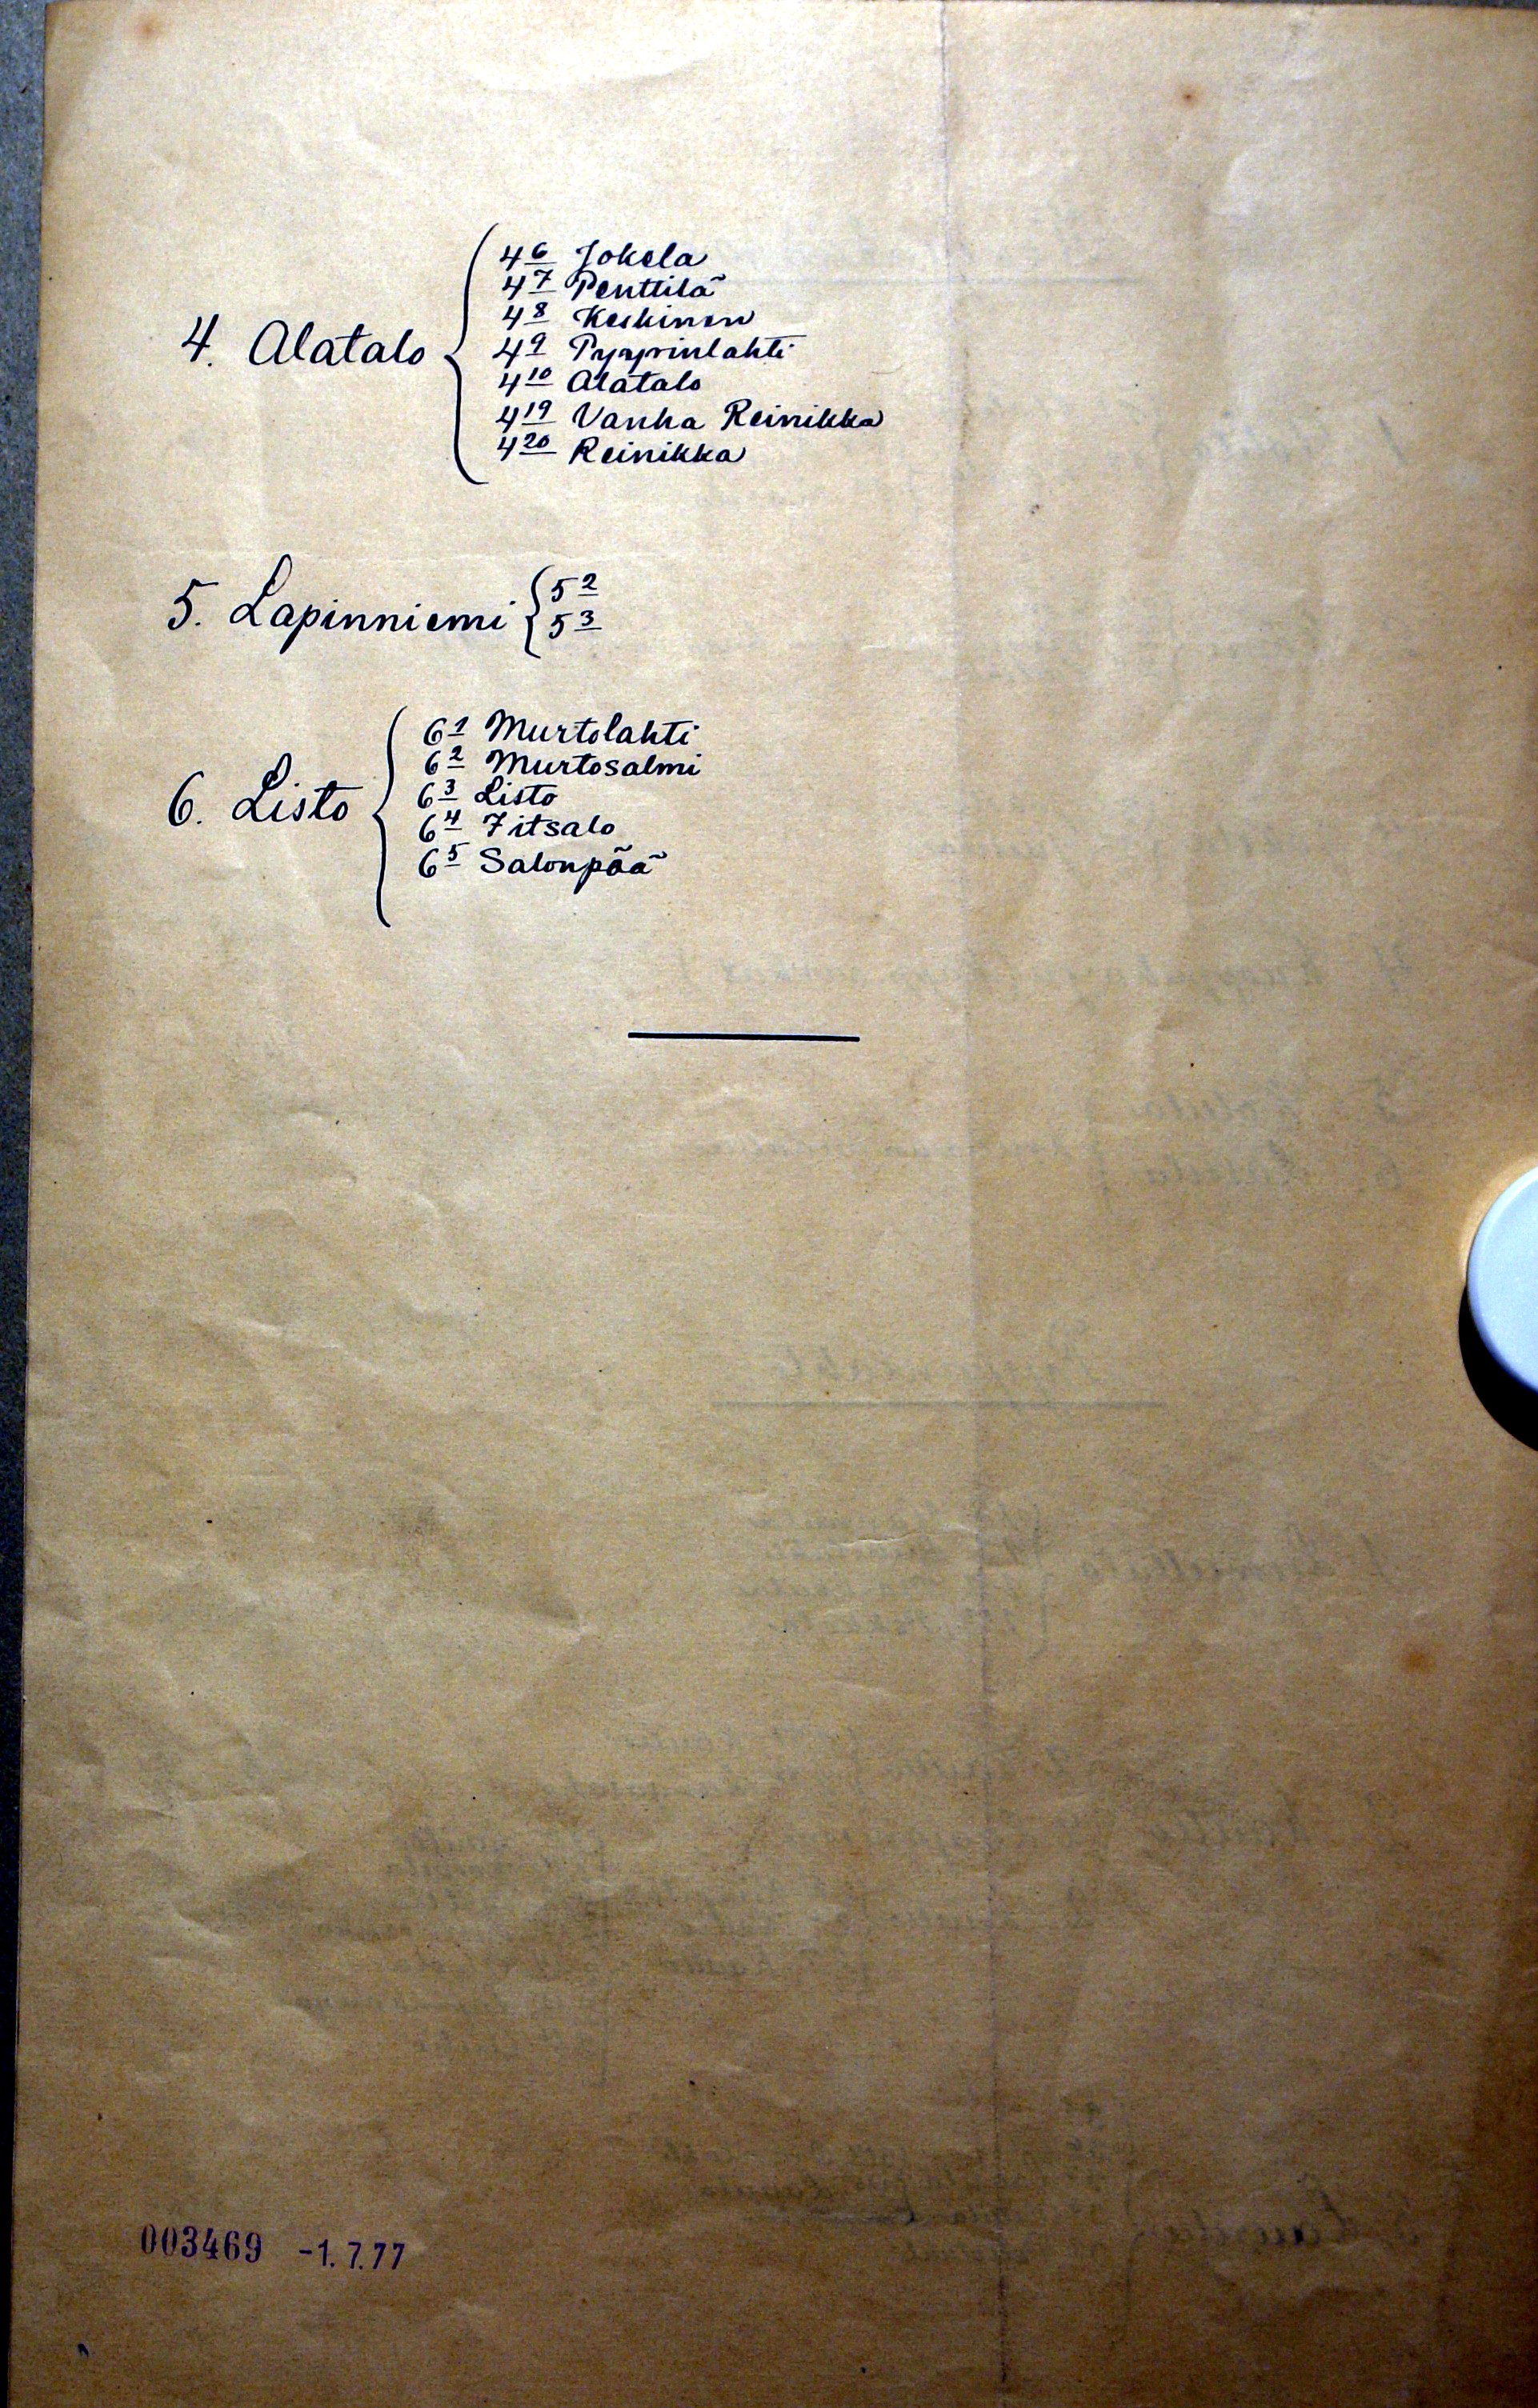 4. Alatalo
4⁶ Jokela
4⁷ Penttilä
4⁸ Keskinen
4⁹ Pyyrinlahti
4¹⁰ Alatalo
4¹⁹ Vanha Reinikka
4²⁰ Reinikka
5. Lapinniemi
5²
5³
6. Listo
6¹ Murtolahti
6² Murtosalmi
6³ Listo
6⁴ Iitsalo
6⁵ Salonpää
003469 -1.7.77